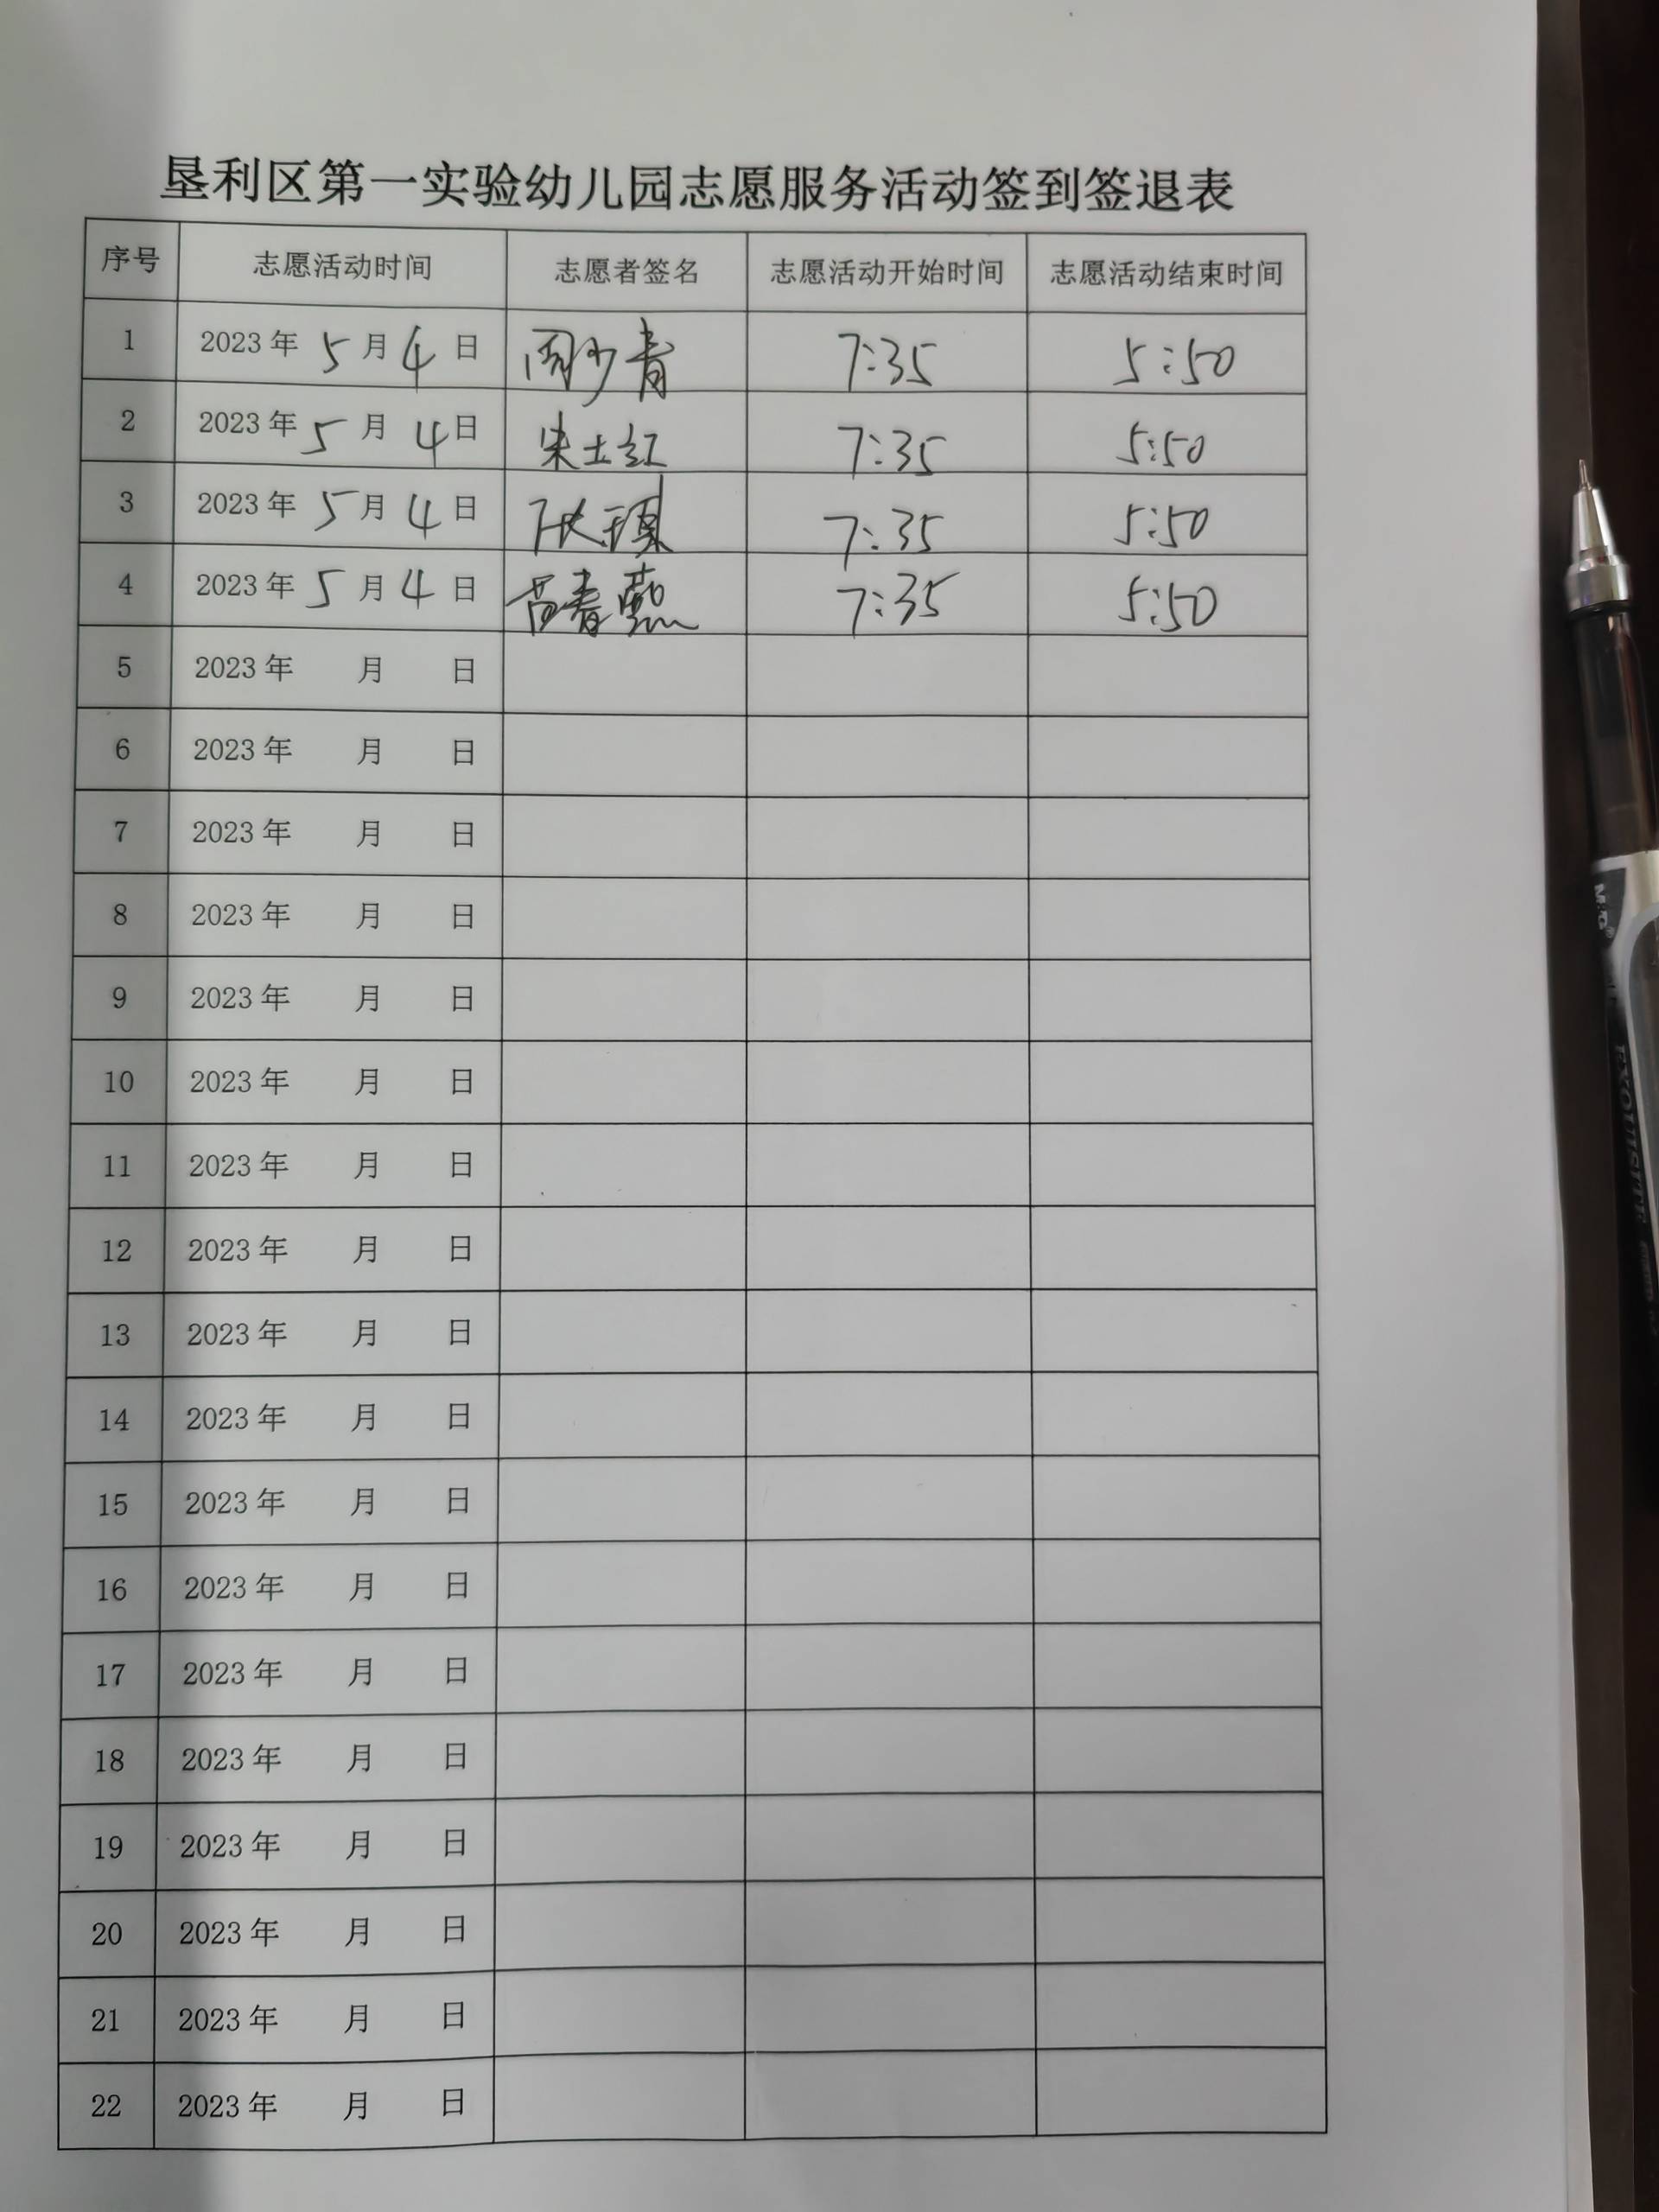 垦利区第一实验幼儿园志愿服务活动签到签退表
序号 志愿活动时间 志愿者签名 志愿活动开始时间 志愿活动结束时间
1 2023年 5月 4日 周少青 7:35 5:50
2 2023年 5月 4日 朱士红 7:35 5:50
3 2023年 5月 4日 7:35 5:50
4 2023年 5月 4日 苗春 7:35 5:50
5 2023年 月 日
6 2023年 月 日
7 2023年 月 日
8 2023年 月 日
9 2023年 月 日
10 2023年 月 日
11 2023年 月 日
12 2023年 月 日
13 2023年 月 日
14 2023年 月 日
15 2023年 月 日
16 2023年 月 日
17 2023年 月 日
18 2023年 月 日
19 2023年 月 日
20 2023年 月 日
21 2023年 月 日
22 2023年 月 日
M&G
EXQUISITE